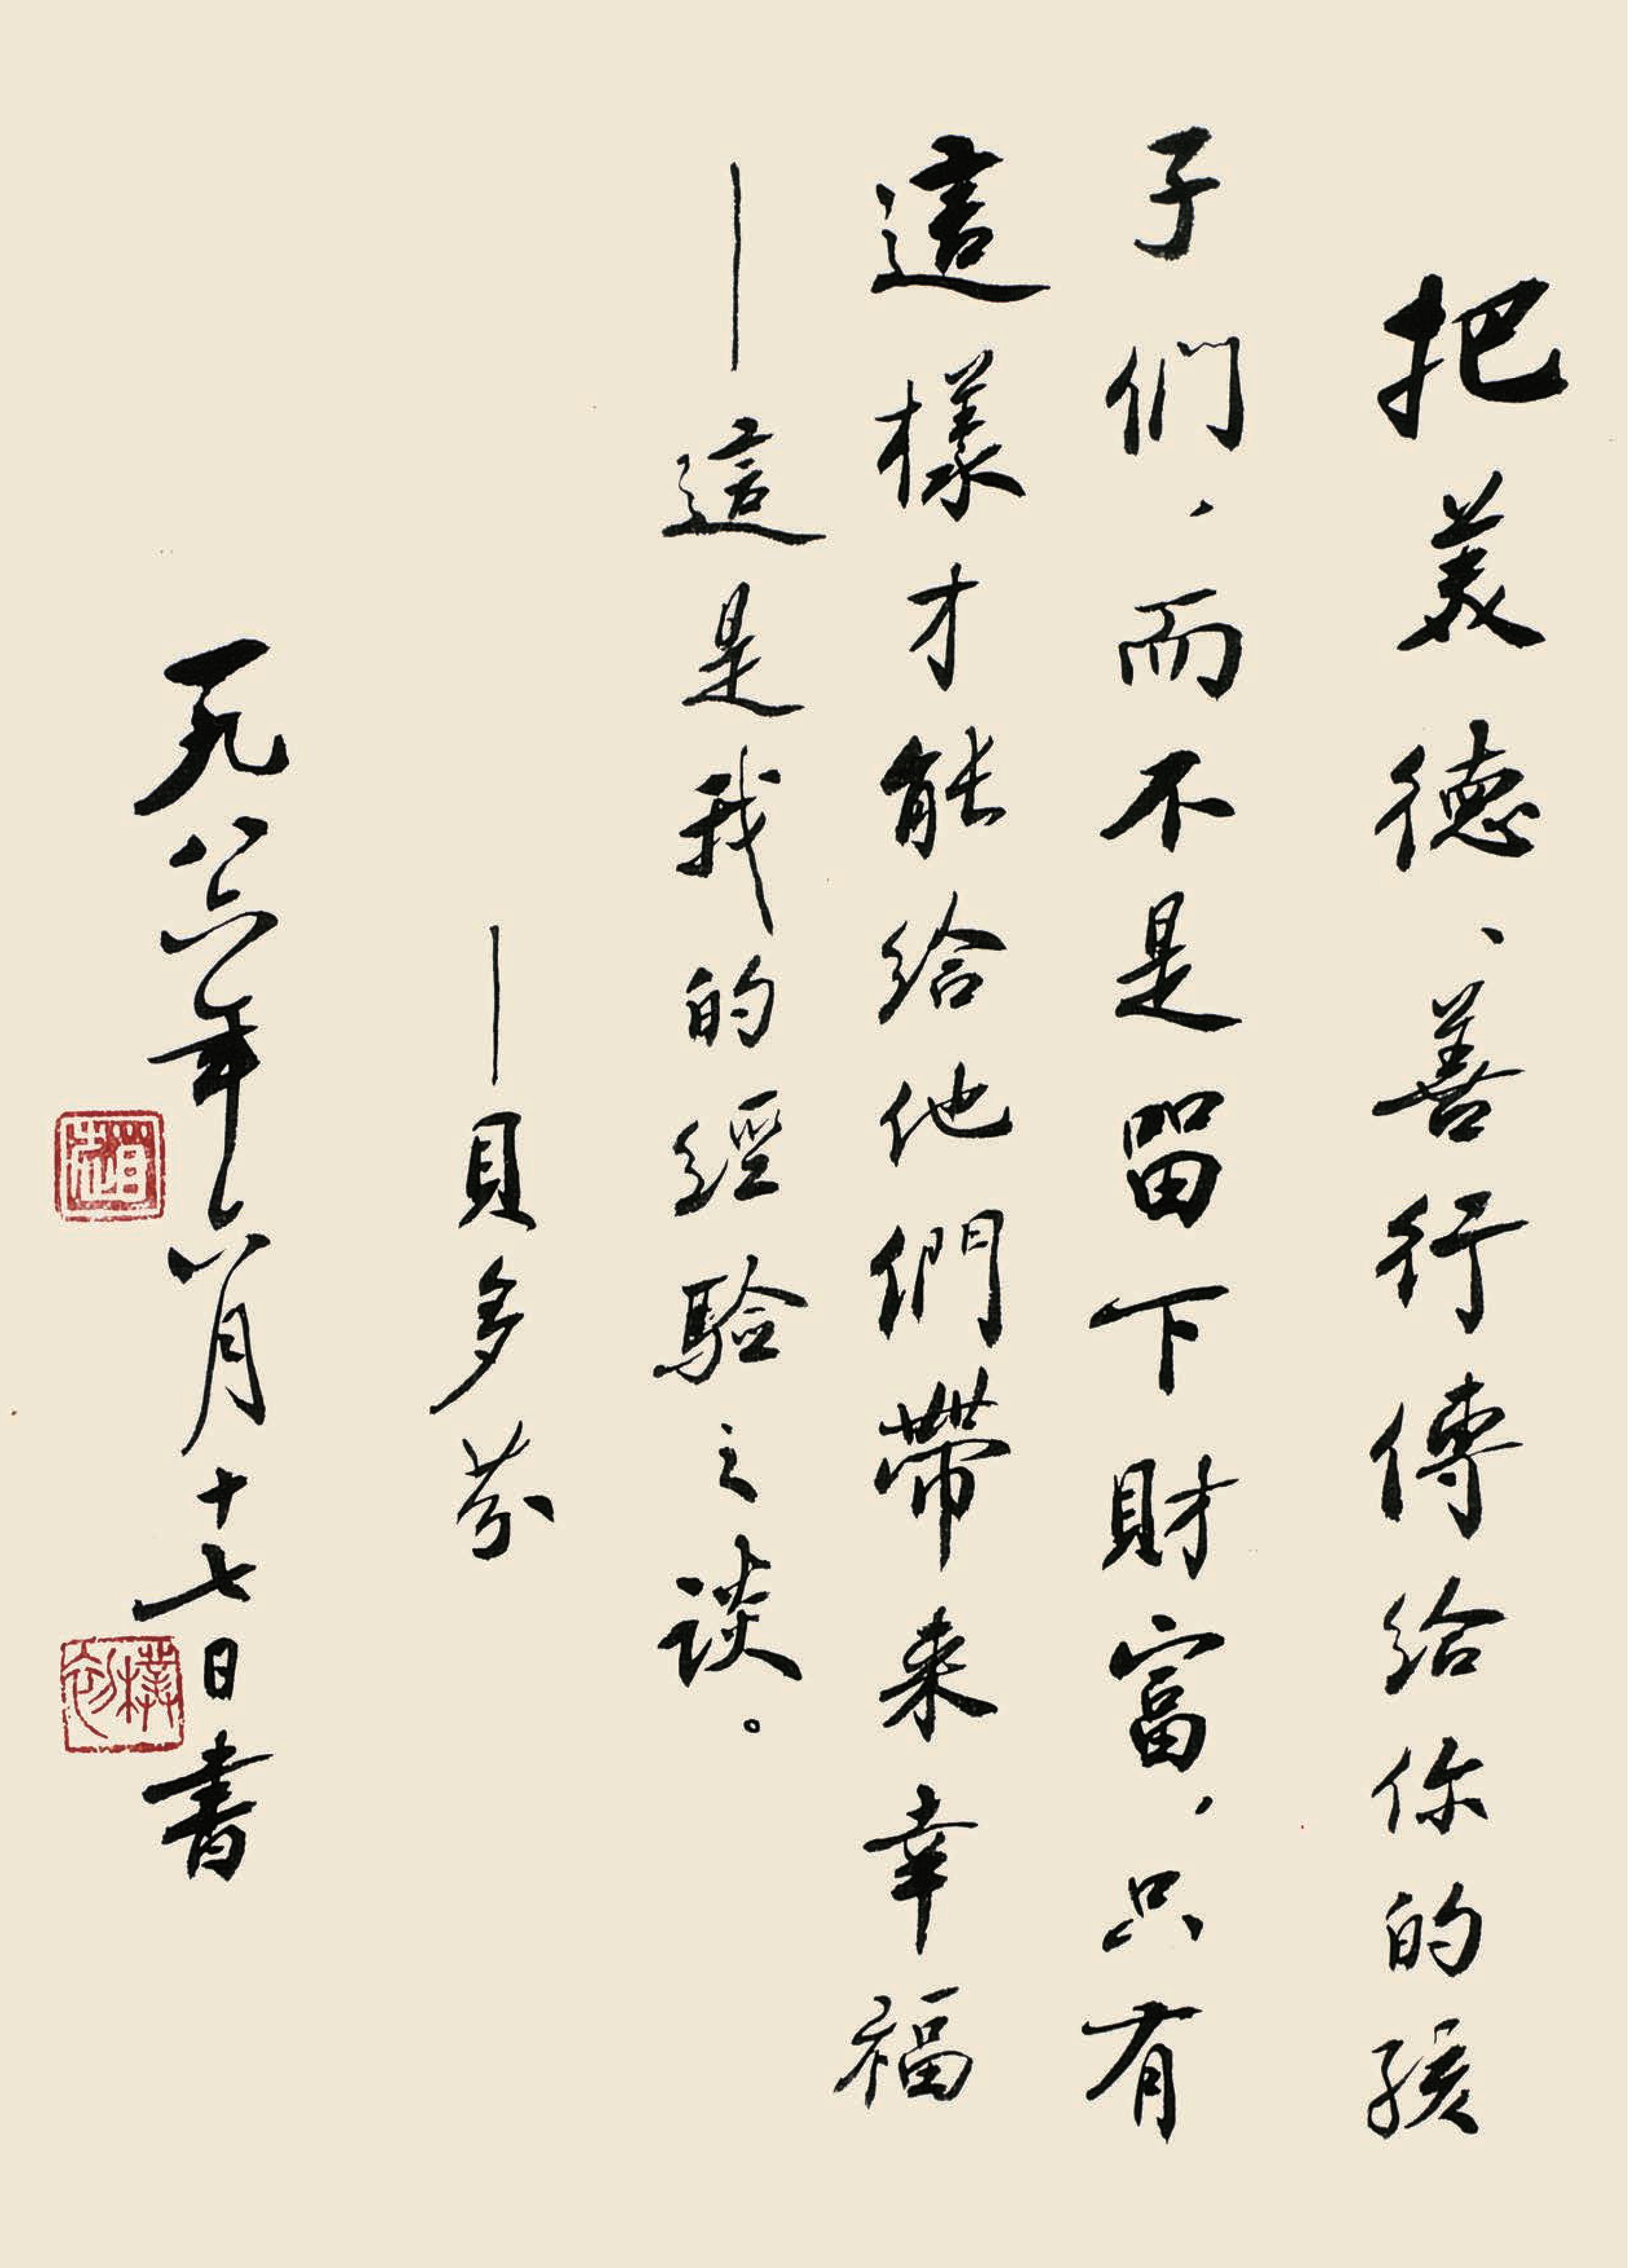 把美德、善行傳給你的孩
子们，而不是留下財富，只有
這樣才能給他們帶来幸福
——這是我的經驗之談。
——貝多芬
一九八六年六月十七日書
趙
樸初